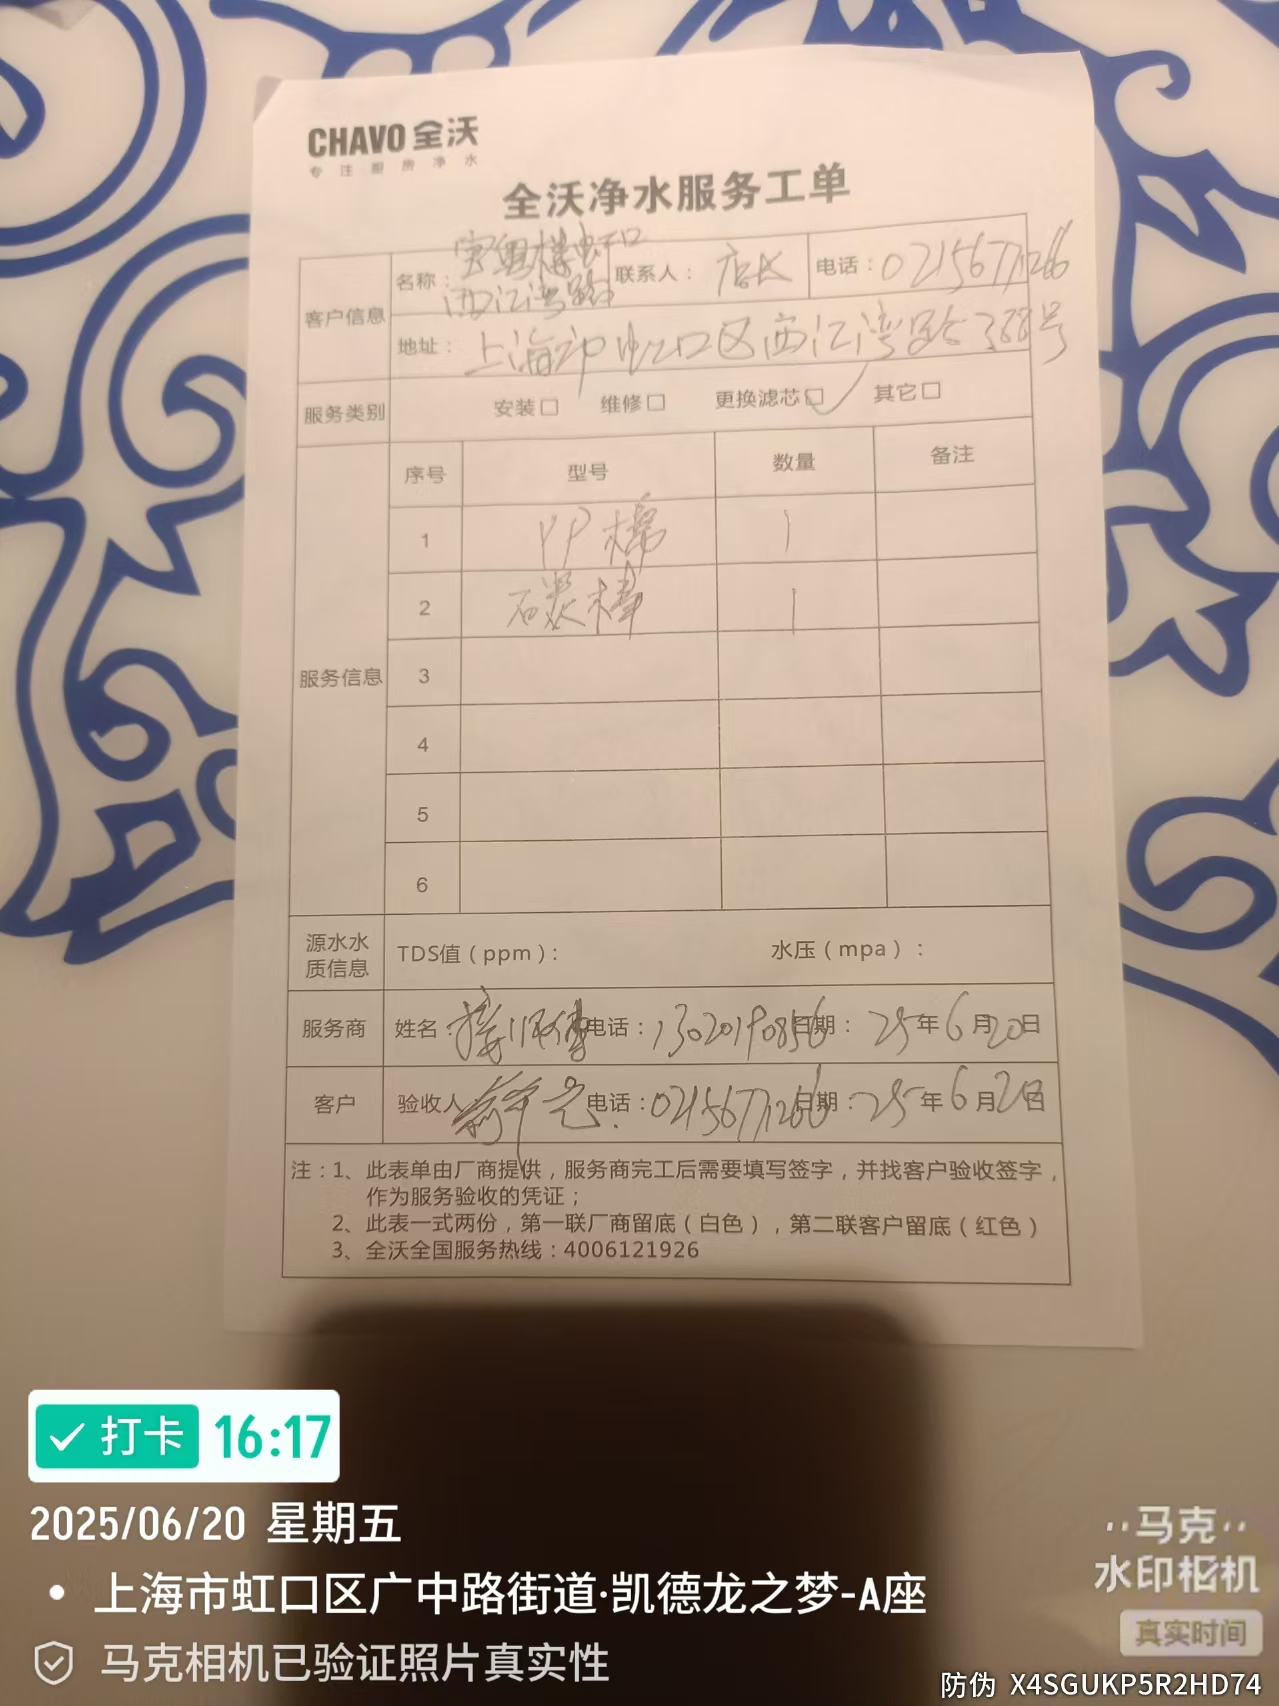 CHAVO 全沃
专注厨房净水
全沃净水服务工单
客户信息 名称： 宝奥楼虹口西江湾路 联系人： 店长 电话：02156771266
地址： 上海市虹口区西江湾路388号
服务类别 安装□ 维修□ 更换滤芯□✓ 其它□
服务信息 序号 型号 数量 备注
1 PP棉 1
2 碳棒 1
3
4
5
6
源水水质信息 TDS值（ppm）： 水压（mpa）：
服务商 姓名： 师傅 电话：13020190856 日期： 25年6月20日
客户 验收人 电话：02156771266 日期：25年6月20日
注：1、此表单由厂商提供，服务商完工后需要填写签字，并找客户验收签字，
作为服务验收的凭证；
2、此表一式两份，第一联厂商留底（白色），第二联客户留底（红色）
3、全沃全国服务热线：4006121926
打卡 16:17
2025/06/20 星期五
上海市虹口区广中路街道·凯德龙之梦-A座
马克相机已验证照片真实性
马克
水印相机
真实时间
防伪 X4SGUKP5R2HD74